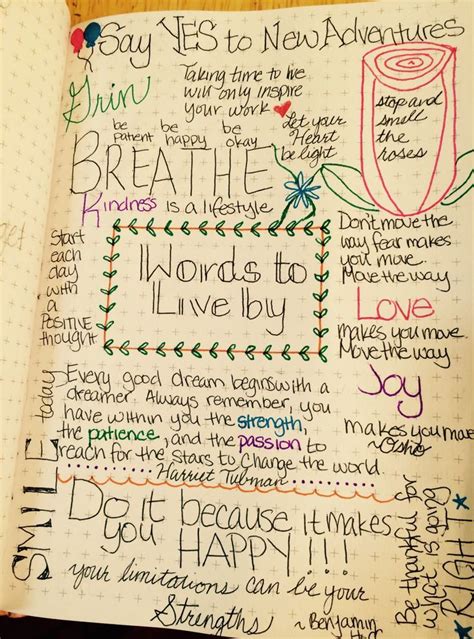 Say YES to New Adventures
Grin
Taking time to live
will only inspire
your work
Let your
Heart
be light
stop and
smell
the
roses
be patient
be happy
be okay
BREATHE
Kindness is a lifestyle
Start
each
day
with
a
POSITIVE
thought
Words to
Live by
Don't move the
way fear makes
you move.
Move the way
Love
makes you move.
Move the way
Joy
makes you move
~Osho
SMILE today
Every good dream begins with a
dreamer. Always remember, you
have within you the strength,
the patience, and the passion to
reach for the stars to change the world.
Harriet Tubman
Do it because it makes
you HAPPY!!!
your limitations can be your
Strengths
~ Benjamin
Be thankful for
what is going
RIGHT